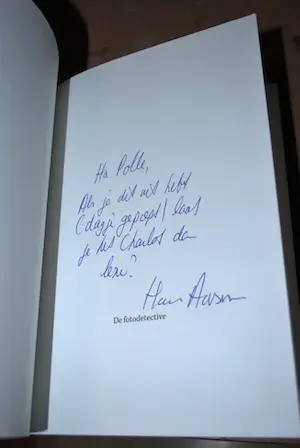 Ha Polle,
Als je dit uit hebt
(dagje gepiept) laat
je het Charlot dan
lezen?
Hans Aarsman
De fotodetective